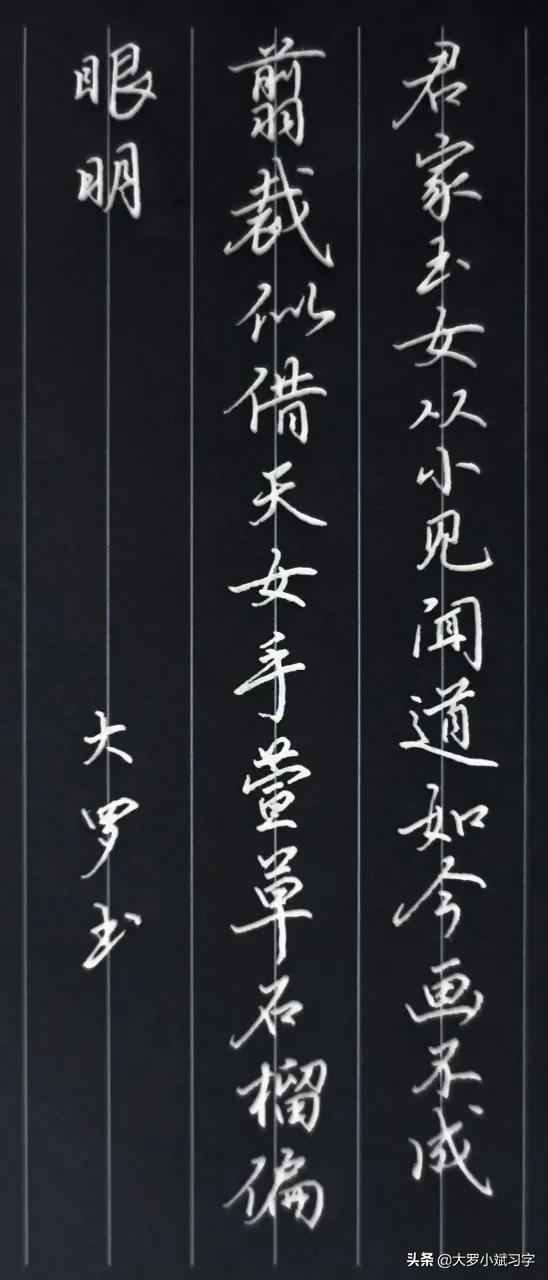 君家玉女从小见闻道如今画不成
翦裁似借天女手萱草石榴偏
眼明
大罗玉
头条 @大罗小斌习字